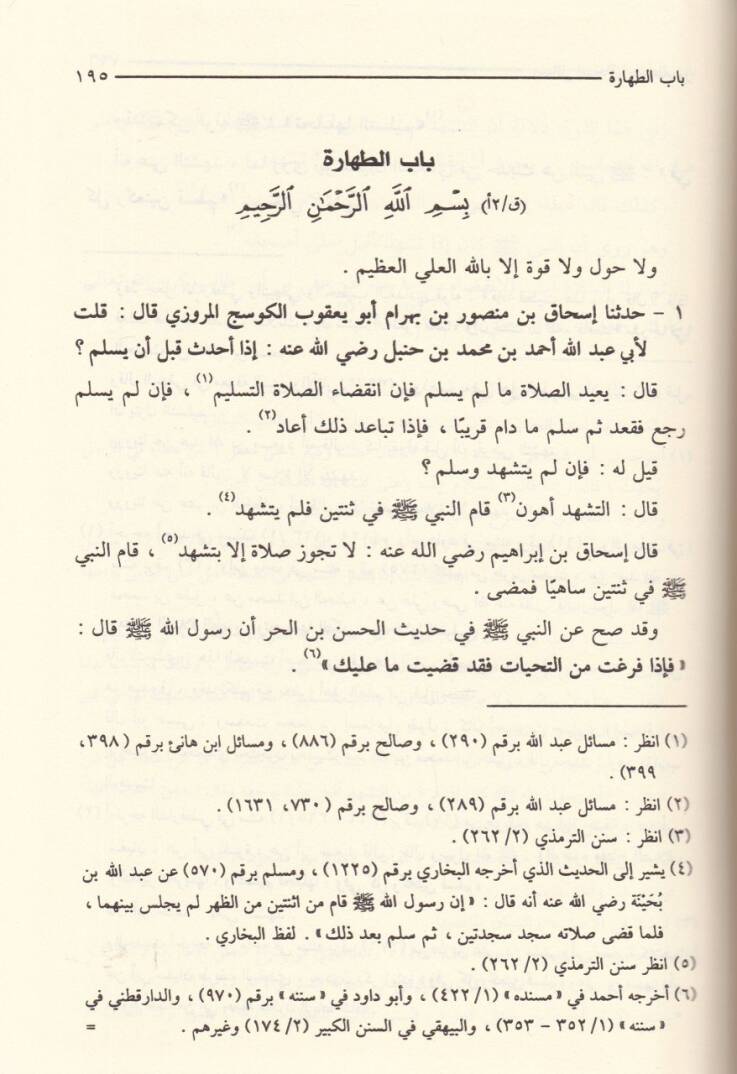 باب الطهارة ١٩٥
باب الطهارة
(ق/٢أ) بِسْمِ اللَّهِ الرَّحْمَٰنِ الرَّحِيمِ
ولا حول ولا قوة إلا بالله العلي العظيم .
١ - حدثنا إسحاق بن منصور بن بهرام أبو يعقوب الكوسج المروزي قال : قلت
لأبي عبد الله أحمد بن محمد بن حنبل رضي الله عنه : إذا أحدث قبل أن يسلم ؟
قال : يعيد الصلاة ما لم يسلم فإن انقضاء الصلاة التسليم(١) ، فإن لم يسلم
رجع فقعد ثم سلم ما دام قريبًا ، فإذا تباعد ذلك أعاد(٢) .
قيل له : فإن لم يتشهد وسلم ؟
قال : التشهد أهون(٣) قام النبي ﷺ في ثنتين فلم يتشهد(٤) .
قال إسحاق بن إبراهيم رضي الله عنه : لا تجوز صلاة إلا بتشهد(٥) ، قام النبي
ﷺ في ثنتين ساهيًا فمضى .
وقد صح عن النبي ﷺ في حديث الحسن بن الحر أن رسول الله ﷺ قال :
« فإذا فرغت من التحيات فقد قضيت ما عليك »(٦) .
(١) انظر : مسائل عبد الله برقم (٢٩٠) ، وصالح برقم (٨٨٦) ، ومسائل ابن هانئ برقم (٣٩٨،
٣٩٩) .
(٢) انظر : مسائل عبد الله برقم (٢٨٩) ، وصالح برقم (٧٣٠، ١٦٣١) .
(٣) انظر : سنن الترمذي (٢/ ٢٦٢) .
(٤) يشير إلى الحديث الذي أخرجه البخاري برقم (١٢٢٥) ، ومسلم برقم (٥٧٠) عن عبد الله بن
بُحَيْنَة رضي الله عنه أنه قال : « إن رسول الله ﷺ قام من اثنتين من الظهر لم يجلس بينهما ،
فلما قضى صلاته سجد سجدتين ، ثم سلم بعد ذلك » . لفظ البخاري .
(٥) انظر سنن الترمذي (٢/ ٢٦٢) .
(٦) أخرجه أحمد في « مسنده » (١/ ٤٢٢) ، وأبو داود في « سننه » برقم (٩٧٠) ، والدارقطني في
« سننه » (١/ ٣٥٢ - ٣٥٣) ، والبيهقي في السنن الكبير (٢/ ١٧٤) وغيرهم . =